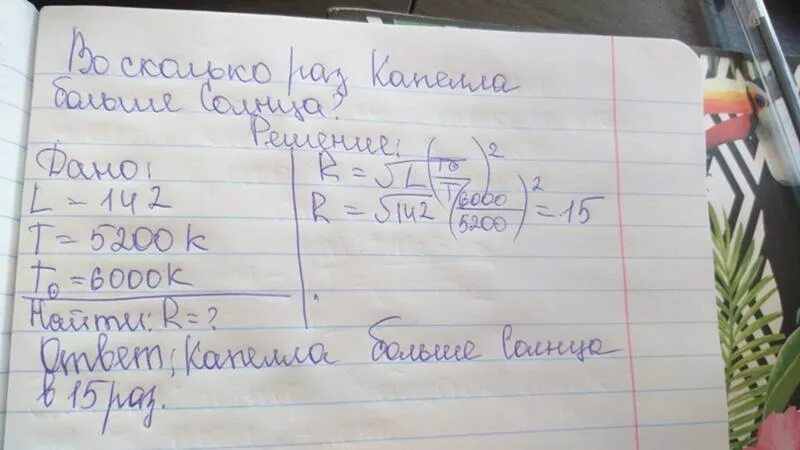 Во сколько раз Капелла
больше Солнца?
Решение:
Дано:
L = 142
T = 5200К
T⊙ = 6000К
Найти: R = ?
R = √L (T⊙/T)²
R = √142 (6000/5200)² = 15
Ответ; Капелла больше Солнца
в 15 раз.